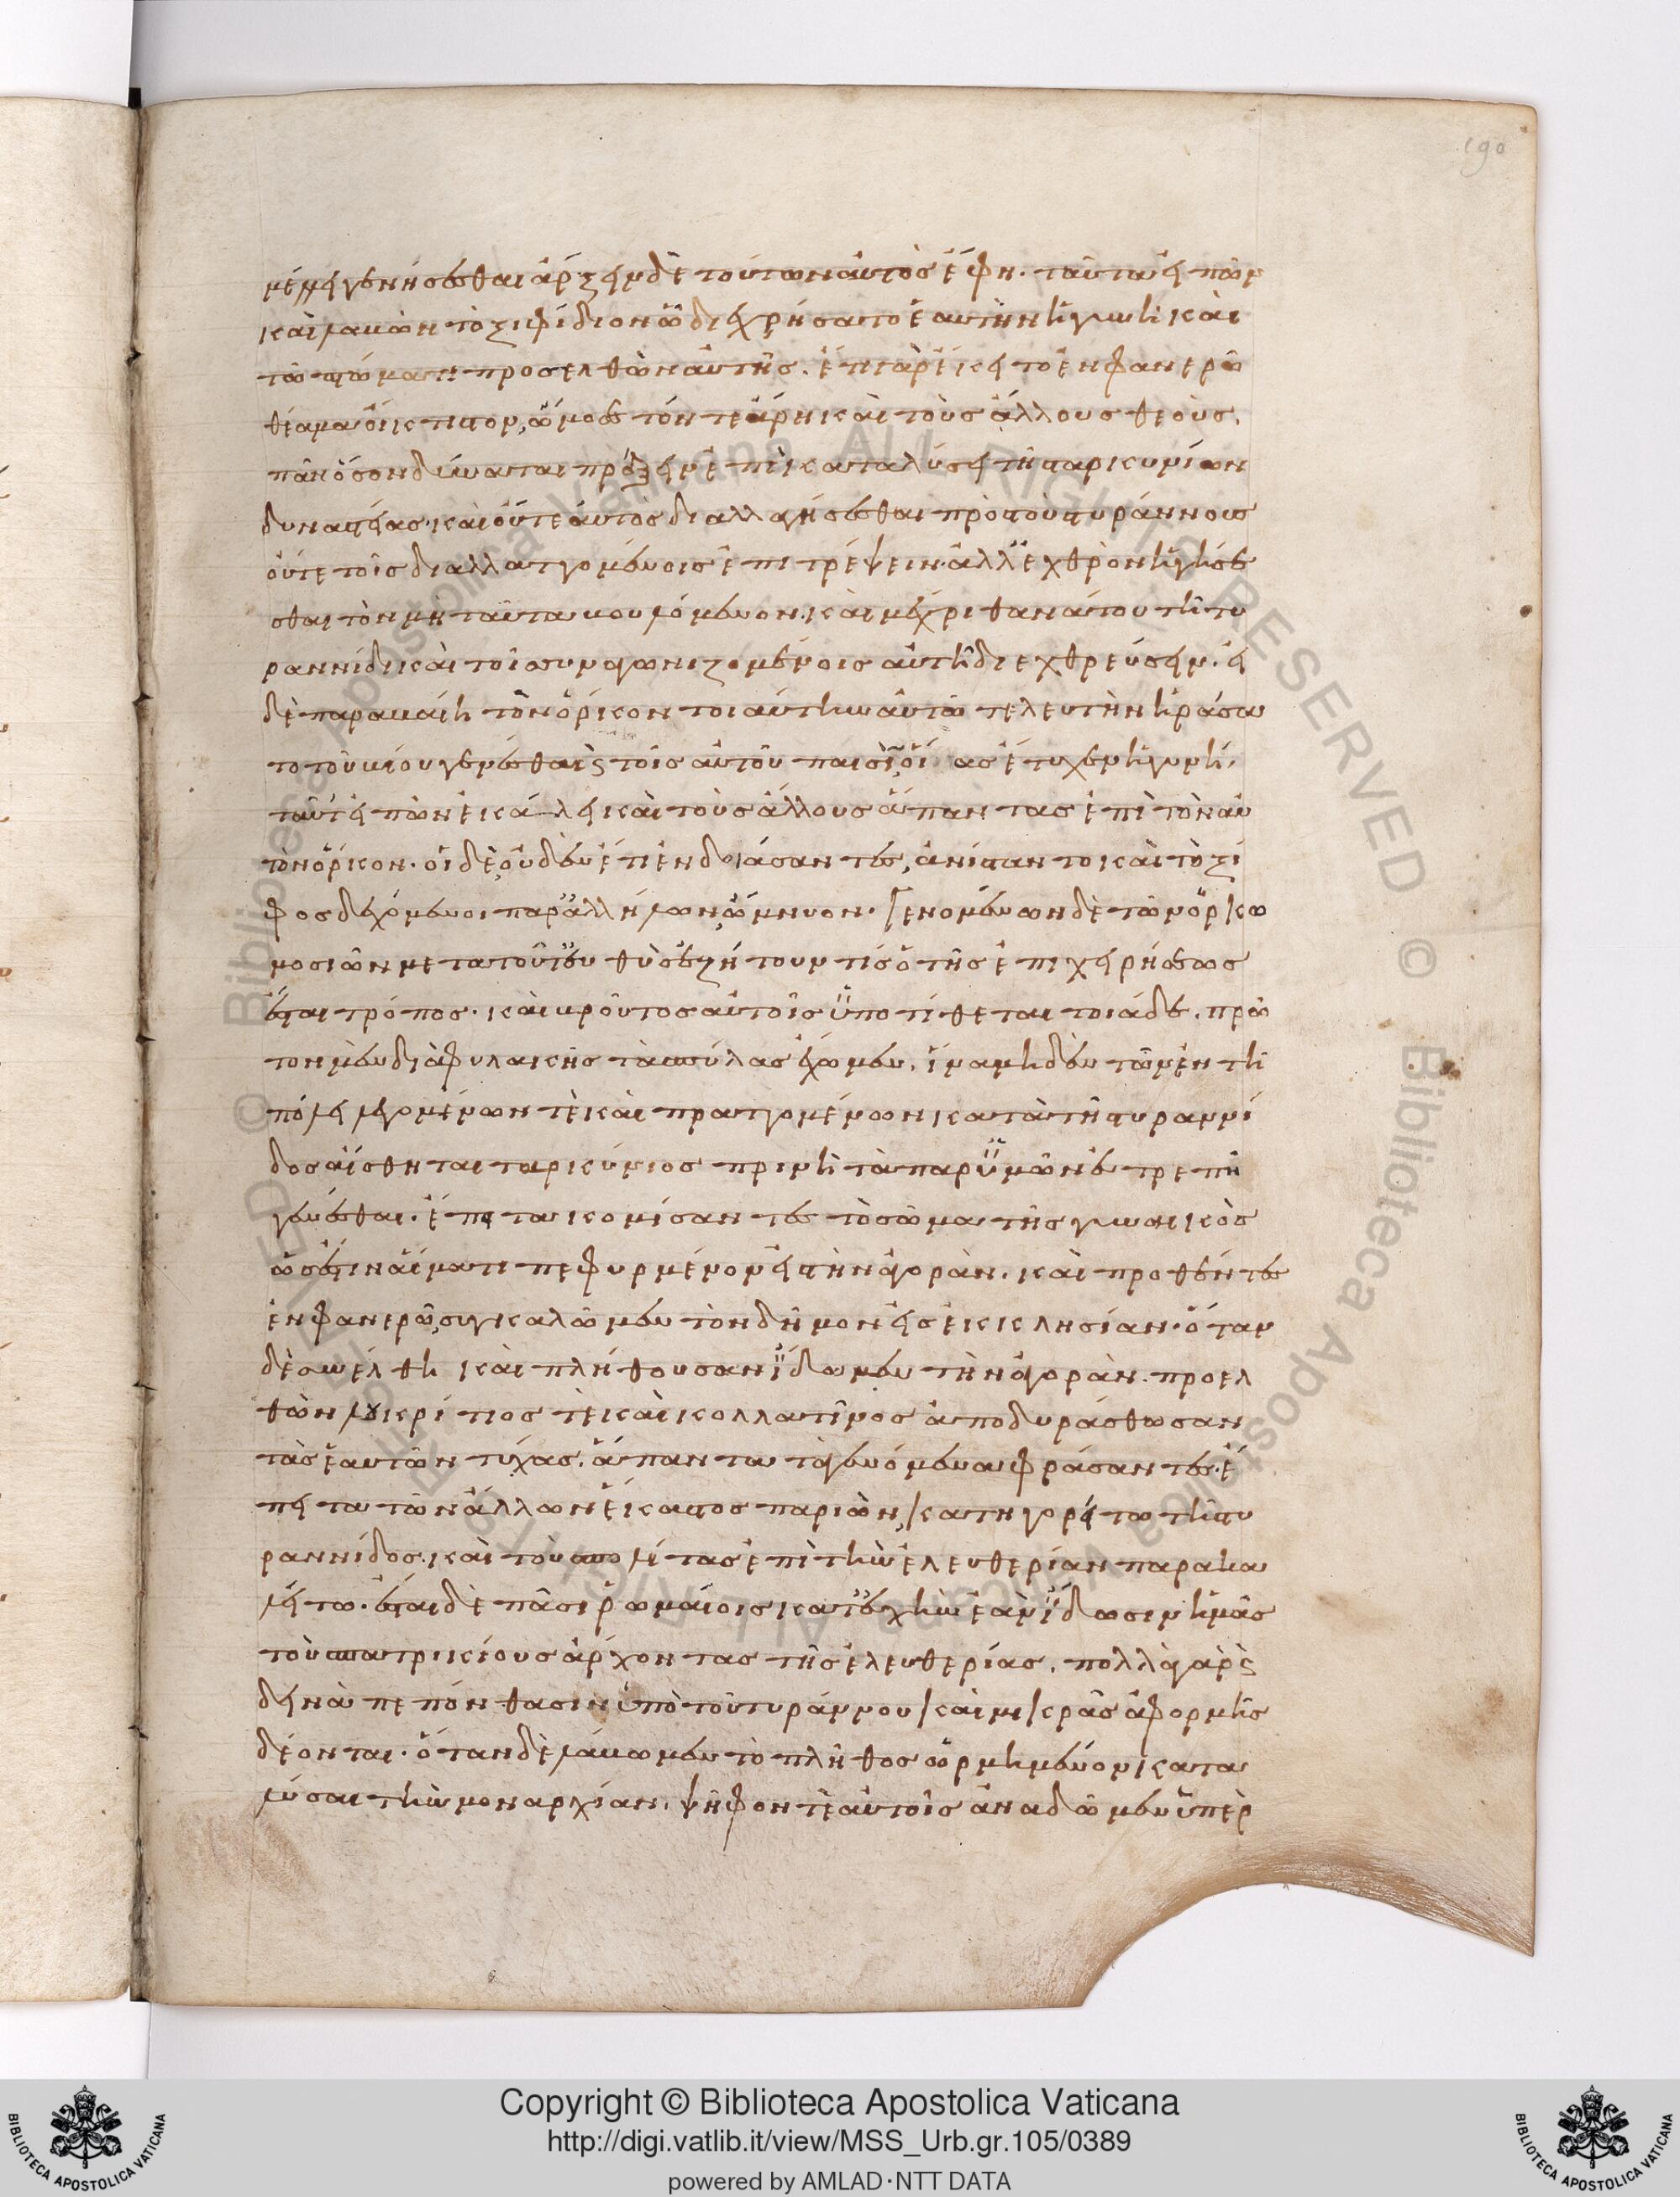 190
μέλλει γενήσεσθαι ἄρξειν δὲ τούτων αὐτὸς ἔφη. ταῦτα εἰπὼν
καὶ λαβὼν τὸ ξιφίδιον ὧ διεχρήσατο ἑαυτὴν ἡ γυνὴ καὶ
τῶ πτώματι προσελθὼν αὐτῆς. ἔτι γὰρ ἔκειτο ἐν φανερῶ
θέαμα οἴκτιστον, ὤμοσε τόν τε ἄρη καὶ τοὺς ἄλλους θεοὺς,
πᾶν ὅσον δύναται πράξειν ἐπὶ καταλύσει τῆς ταρκυνίων
δυναστείας. καὶ οὔτε αὐτὸς διαλλαγήσεσθαι πρὸς τοὺς τυράννους
οὔτε τοῖς διαλλαττομένοις ἐπιτρέψειν. ἀλλ' ἐχθρὸν ἡγήσε
σθαι τὸν μὴ ταῦτα βουλόμενον. καὶ μέχρι θανάτου τῆ τυ
ραννίδι καὶ τοῖς συναγωνιζομένοις αὐτῆ διεχθρεύσειν. εἰ
δὲ παραβαίη τὸν ὅρκον τοιαύτην αὑτῶ τελευτὴν ἠράσα
το τοῦ βίου γενέσθαι καὶ τοῖς αὐτοῦ παισὶν, οἵας ἔτυχεν ἡ γυνή.
ταῦτ' εἰπὼν ἐκάλει καὶ τοὺς ἄλλους ἅπαντας ἐπὶ τὸν αὐ
τὸν ὅρκον. οἱ δὲ, οὐδὲν ἔτι ἐνδοιάσαντες, ἀνίσταντο καὶ τὸ ξί
φος δεχόμενοι παρ' ἀλλήλων, ὤμνυον. Γενομένων δὲ τῶν ὁρκω
μοσιῶν μετὰ τοῦτ' εὐθὺς ἐζήτουν τίς ὁ τῆς ἐπιχειρήσεως
ἔσται τρόπος. καὶ βροῦτος αὐτοῖς ὑποτίθεται τοιάδε. πρῶ
τον μὲν διὰ φυλακῆς τὰς πύλας ἔχωμεν, ἵνα μηδὲν τῶν ἐν τῆ
πόλει λεγομένων τὲ καὶ πραττομένων κατὰ τῆς τυραννί
δος αἴσθηται ταρκύνιος πρὶν ἢ τὰ παρ' ὑμῶν εὐτρεπῆ
γενέσθαι. ἔπειτα κομίσαντες τὸ σῶμα τῆς γυναικὸς
ὡς ἔστιν αἵματι πεφυρμένον εἰς τὴν ἀγορὰν. καὶ προθέντες
ἐν φανερῶ, συγκαλῶμεν τὸν δῆμον εἰς ἐκκλησίαν. ὅταν
δὲ συνέλθη καὶ πλήθουσαν ἴδωμεν τὴν ἀγορὰν. προελ
θὼν λουκρίτιος τὲ καὶ κολλατῖνος ἀποδυράσθωσαν
τὰς ἑαυτῶν τύχας. ἅπαντα τὰ γενόμενα φράσαντες. ἔ
πειτα τῶν ἄλλων ἕκαστος παριὼν, κατηγορείτω τῆς τυ
ραννίδος. καὶ τοὺς πολίτας ἐπὶ τὴν ἐλευθερίαν παρακα
λείτω. ἔσται δὲ πᾶσι ῥωμαίοις κατ' εὐχὴν ἐὰν ἴδωσιν ἡμᾶς
τοὺς πατρικίους ἄρχοντας τῆς ἐλευθερίας. πολλὰ γὰρ καὶ
δεινὰ πεπόνθασιν ὑπὸ τοῦ τυράννου καὶ μικρᾶς ἀφορμῆς
δέονται. ὅταν δὲ λάβωμεν τὸ πλῆθος ὡρμημένον κατα
λῦσαι τὴν μοναρχίαν, ψῆφόν τε αὐτοῖς ἀναδῶμεν ὑπὲρ
Copyright © Biblioteca Apostolica Vaticana
http://digi.vatlib.it/view/MSS_Urb.gr.105/0389
powered by AMLAD·NTT DATA